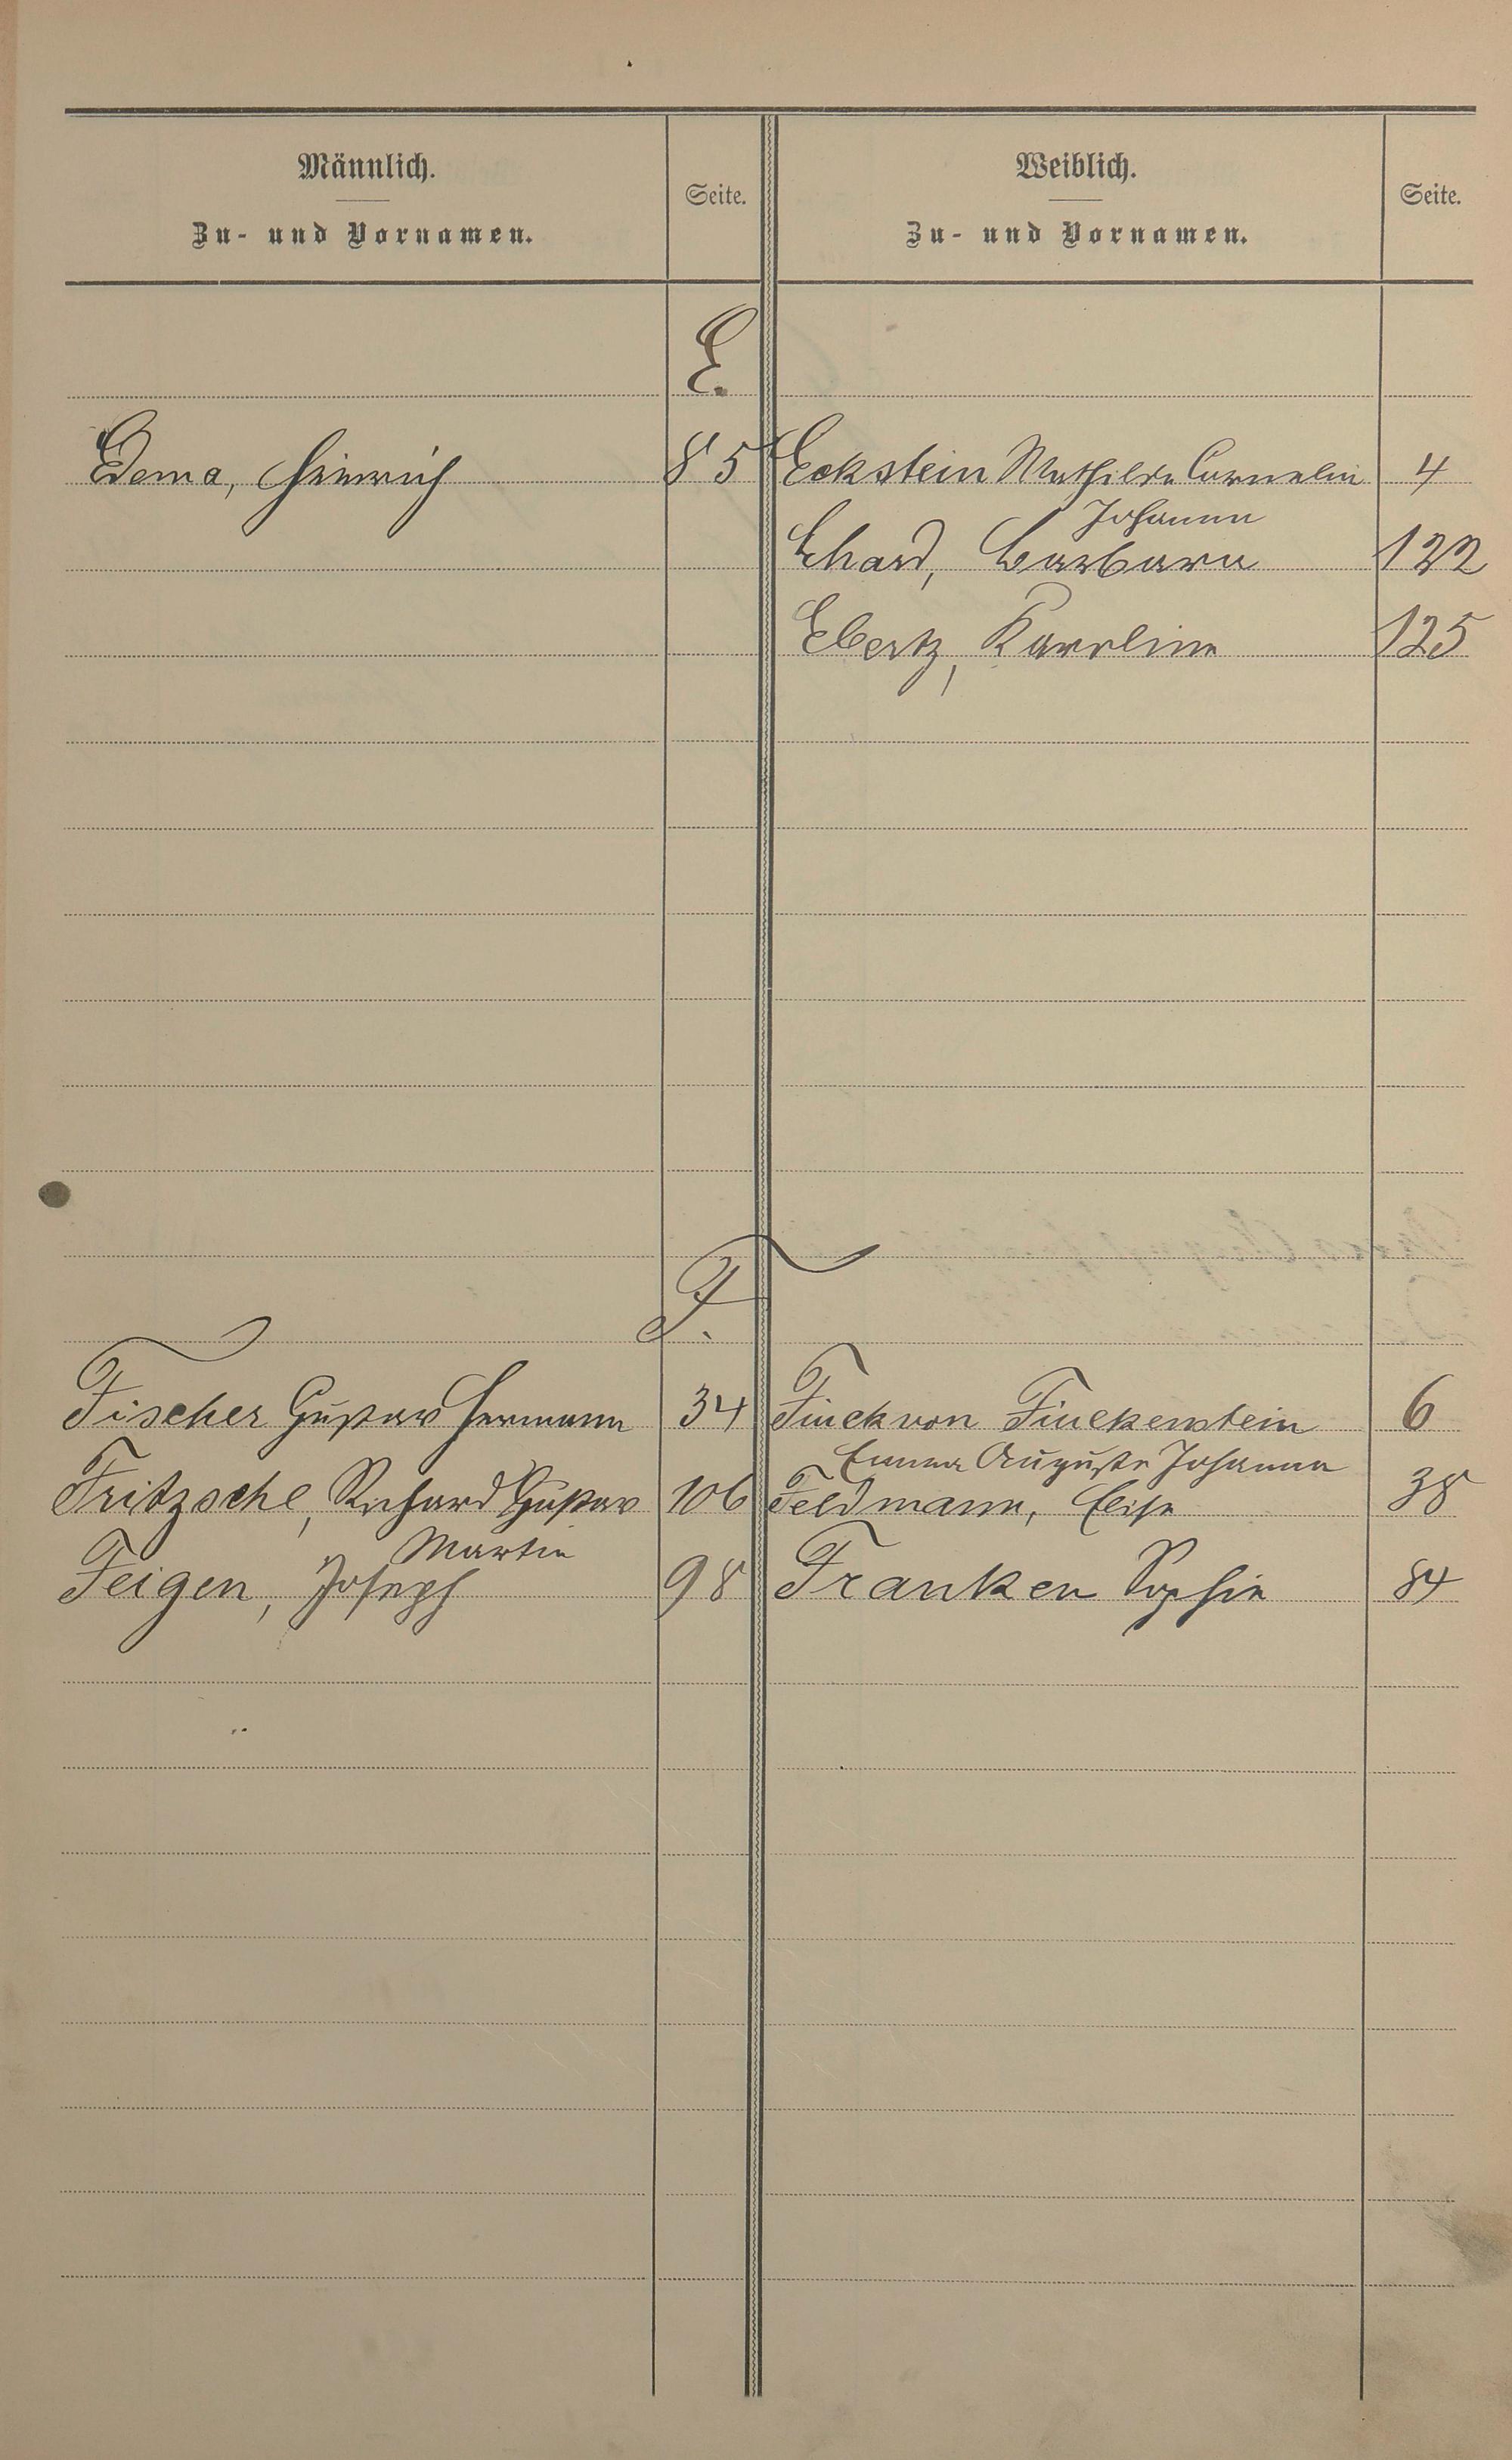 Männlich.
Zu- und Vornamen.
Seite.
Weiblich.
Zu- und Vornamen.
Seite.
E.
Edema, Hinrich 85 Eckstein Mathilde Cornelia 4
Johanna
Ehard, Barbara 122
Ebertz, Karoline 125
F.
Fischer Gustav Hermann 34 Finck von Finckenstein 6
Emma Auguste Johanna
Fritzsche, Richard Gustav 106 Feldmann, Elise 38
Martin
Feigen, Joseph 98 Franken Sophie 84